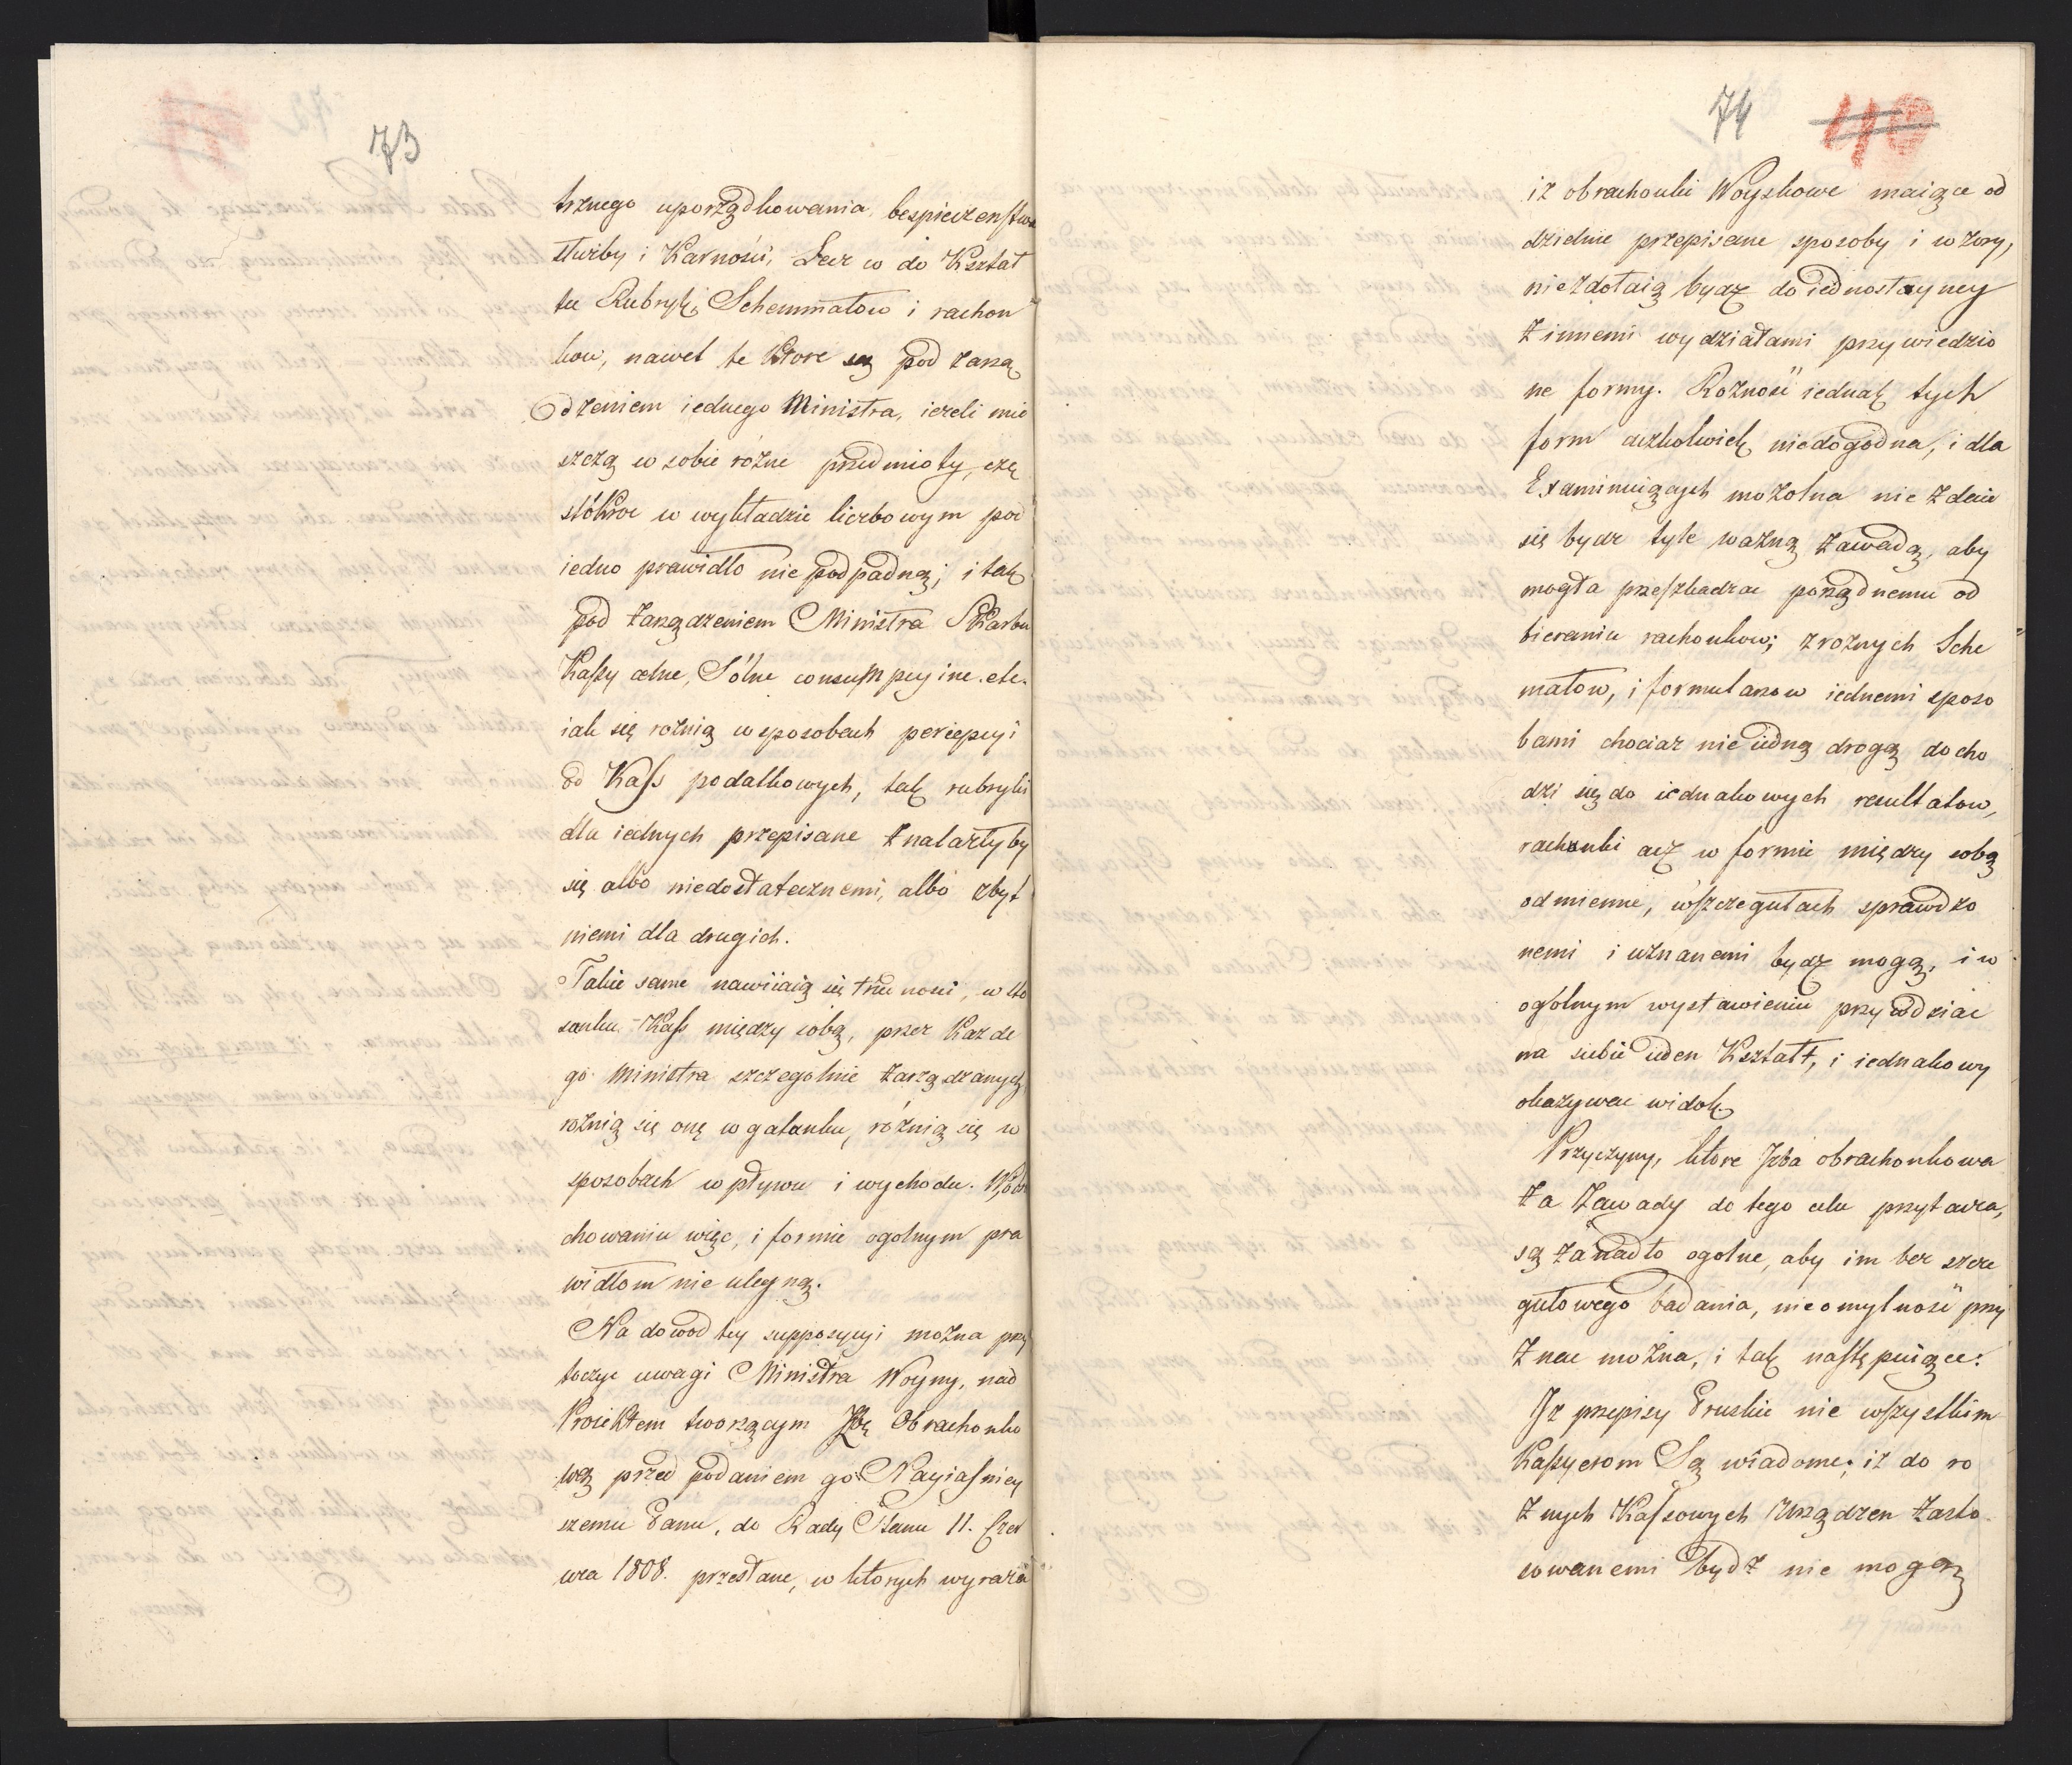 73
trznego uporządkowania, bespieczenstwa
służby i Karności, Lecz co do Kształ
tu Rubryk, Schemmatow i rachon
kow, nawet te ktore są pod zarzą
dzeniem iednego Ministra, iezeli mie
szczą w sobie różne przedmioty, czę
stókroc w wykładzie liczbowym pod
iedno prawidło nie podpadną; i tak
pod zarządzeniem Ministra Skarbu
Kassy celne, Sólne consumpcyine etc.
iak się rożnią w sposobach percepcyi
od Kass podatkowych, tak rubryki
dla iednych przepisane znalazłyby
się albo niedostatecznemi, albo zbyt
niemi dla drugich.
Takie same nawiiaią się trudnosci, w sto
sunku Kass między sobą, przez Kazde
go Ministra szczegolnie zarządzanych,
rożnią się one w gatunku, różnią się w
sposobach wpływu i wychodu. W obra
chowaniu więc, i formie ogolnym pra
widłom nie ulegną.
Na dowod tey supposycyi można przy
toczyc uwagi Ministra Woyny, nad
Proiektem tworzącym Jzbę Obrachonko
wą przed podaniem go Nayiasniey
szemu Panu, do Rady Stanu 11. Czer
wca 1808. przesłane, w ktorych wyraza
74
40
iz obrachonki Woyskowe maiące od
dzielnie przepisane sposoby i wzory,
niezdołaią bydz do iednostayney
z innemi wydziałami przywiedzio
ne formy. Rożność iednak tych
form aczkolwiek niedogodna, i dla
Examinuiących mozolna nie zdaie
się bydz tyle ważną zawadą, aby
mogła przeszkadzac porządnemu od
bieraniu rachonkow; z rożnych Sche
matow, i formularzow iednemi sposo
bami chociaz nie iedną drogą docho
dzi się do iednakowych resultatow,
rachonki acz w formie między sobą
odmienne, w szczegułach sprawdzo
nemi i uznanemi bydz mogą, i w
ogolnym wystawieniu przywdziac
na siebie ieden Kształt, i iednakowy
okazywac widok.
Przyczyny, ktore Jzba obrachonkowa
za Zawady do tego celu przytacza,
są zanadto ogolne, aby im bez szcze
gułowego badania, nieomylność przy
znac można, i tak następuiące:
Jz przepisy Pruskie nie wszystkim
Kassyerom Są wiadome; iż do ro
żnych Kassowych Urządzen zasto
sowanemi bydź nie mogą